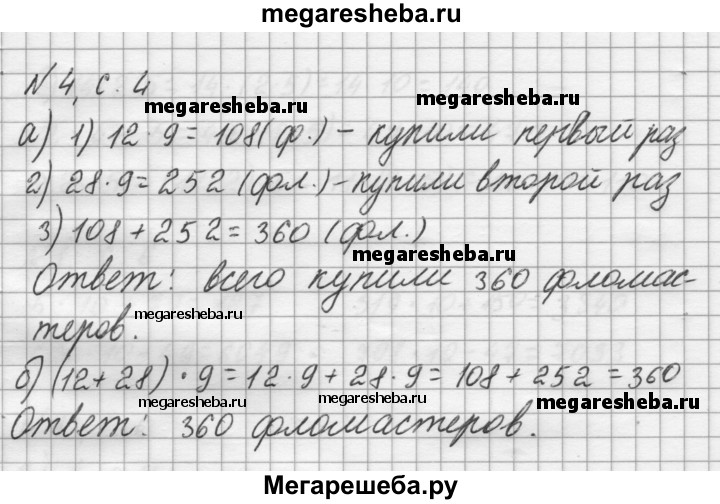 megaresheba.ru
N 4, с. 4
megaresheba.ru
megaresheba.ru
а) 1) 12 · 9 = 108 (ф.) – купили первый раз
2) 28 · 9 = 252 (фл.) – купили второй раз
3) 108 + 252 = 360 (фл.)
megaresheba.ru
Ответ: всего купили 360 фломас-
теров.
megaresheba.ru
б) (12 + 28) · 9 = 12 · 9 + 28 · 9 = 108 + 252 = 360
megaresheba.ru
megaresheba.ru
megaresheba.ru
Ответ: 360 фломастеров.
Мегарешеба.ру